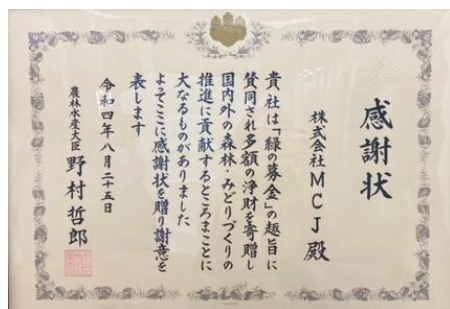 感謝状
株式会社MCJ殿
貴社は「緑の募金」の趣旨に
賛同され多額の浄財を寄贈し
国内外の森林・みどりづくりの
推進に貢献するところまことに
大なるものがありました
よってここに感謝状を贈り謝意を
表します
令和四年八月二十五日
農林水産大臣 野村哲郎